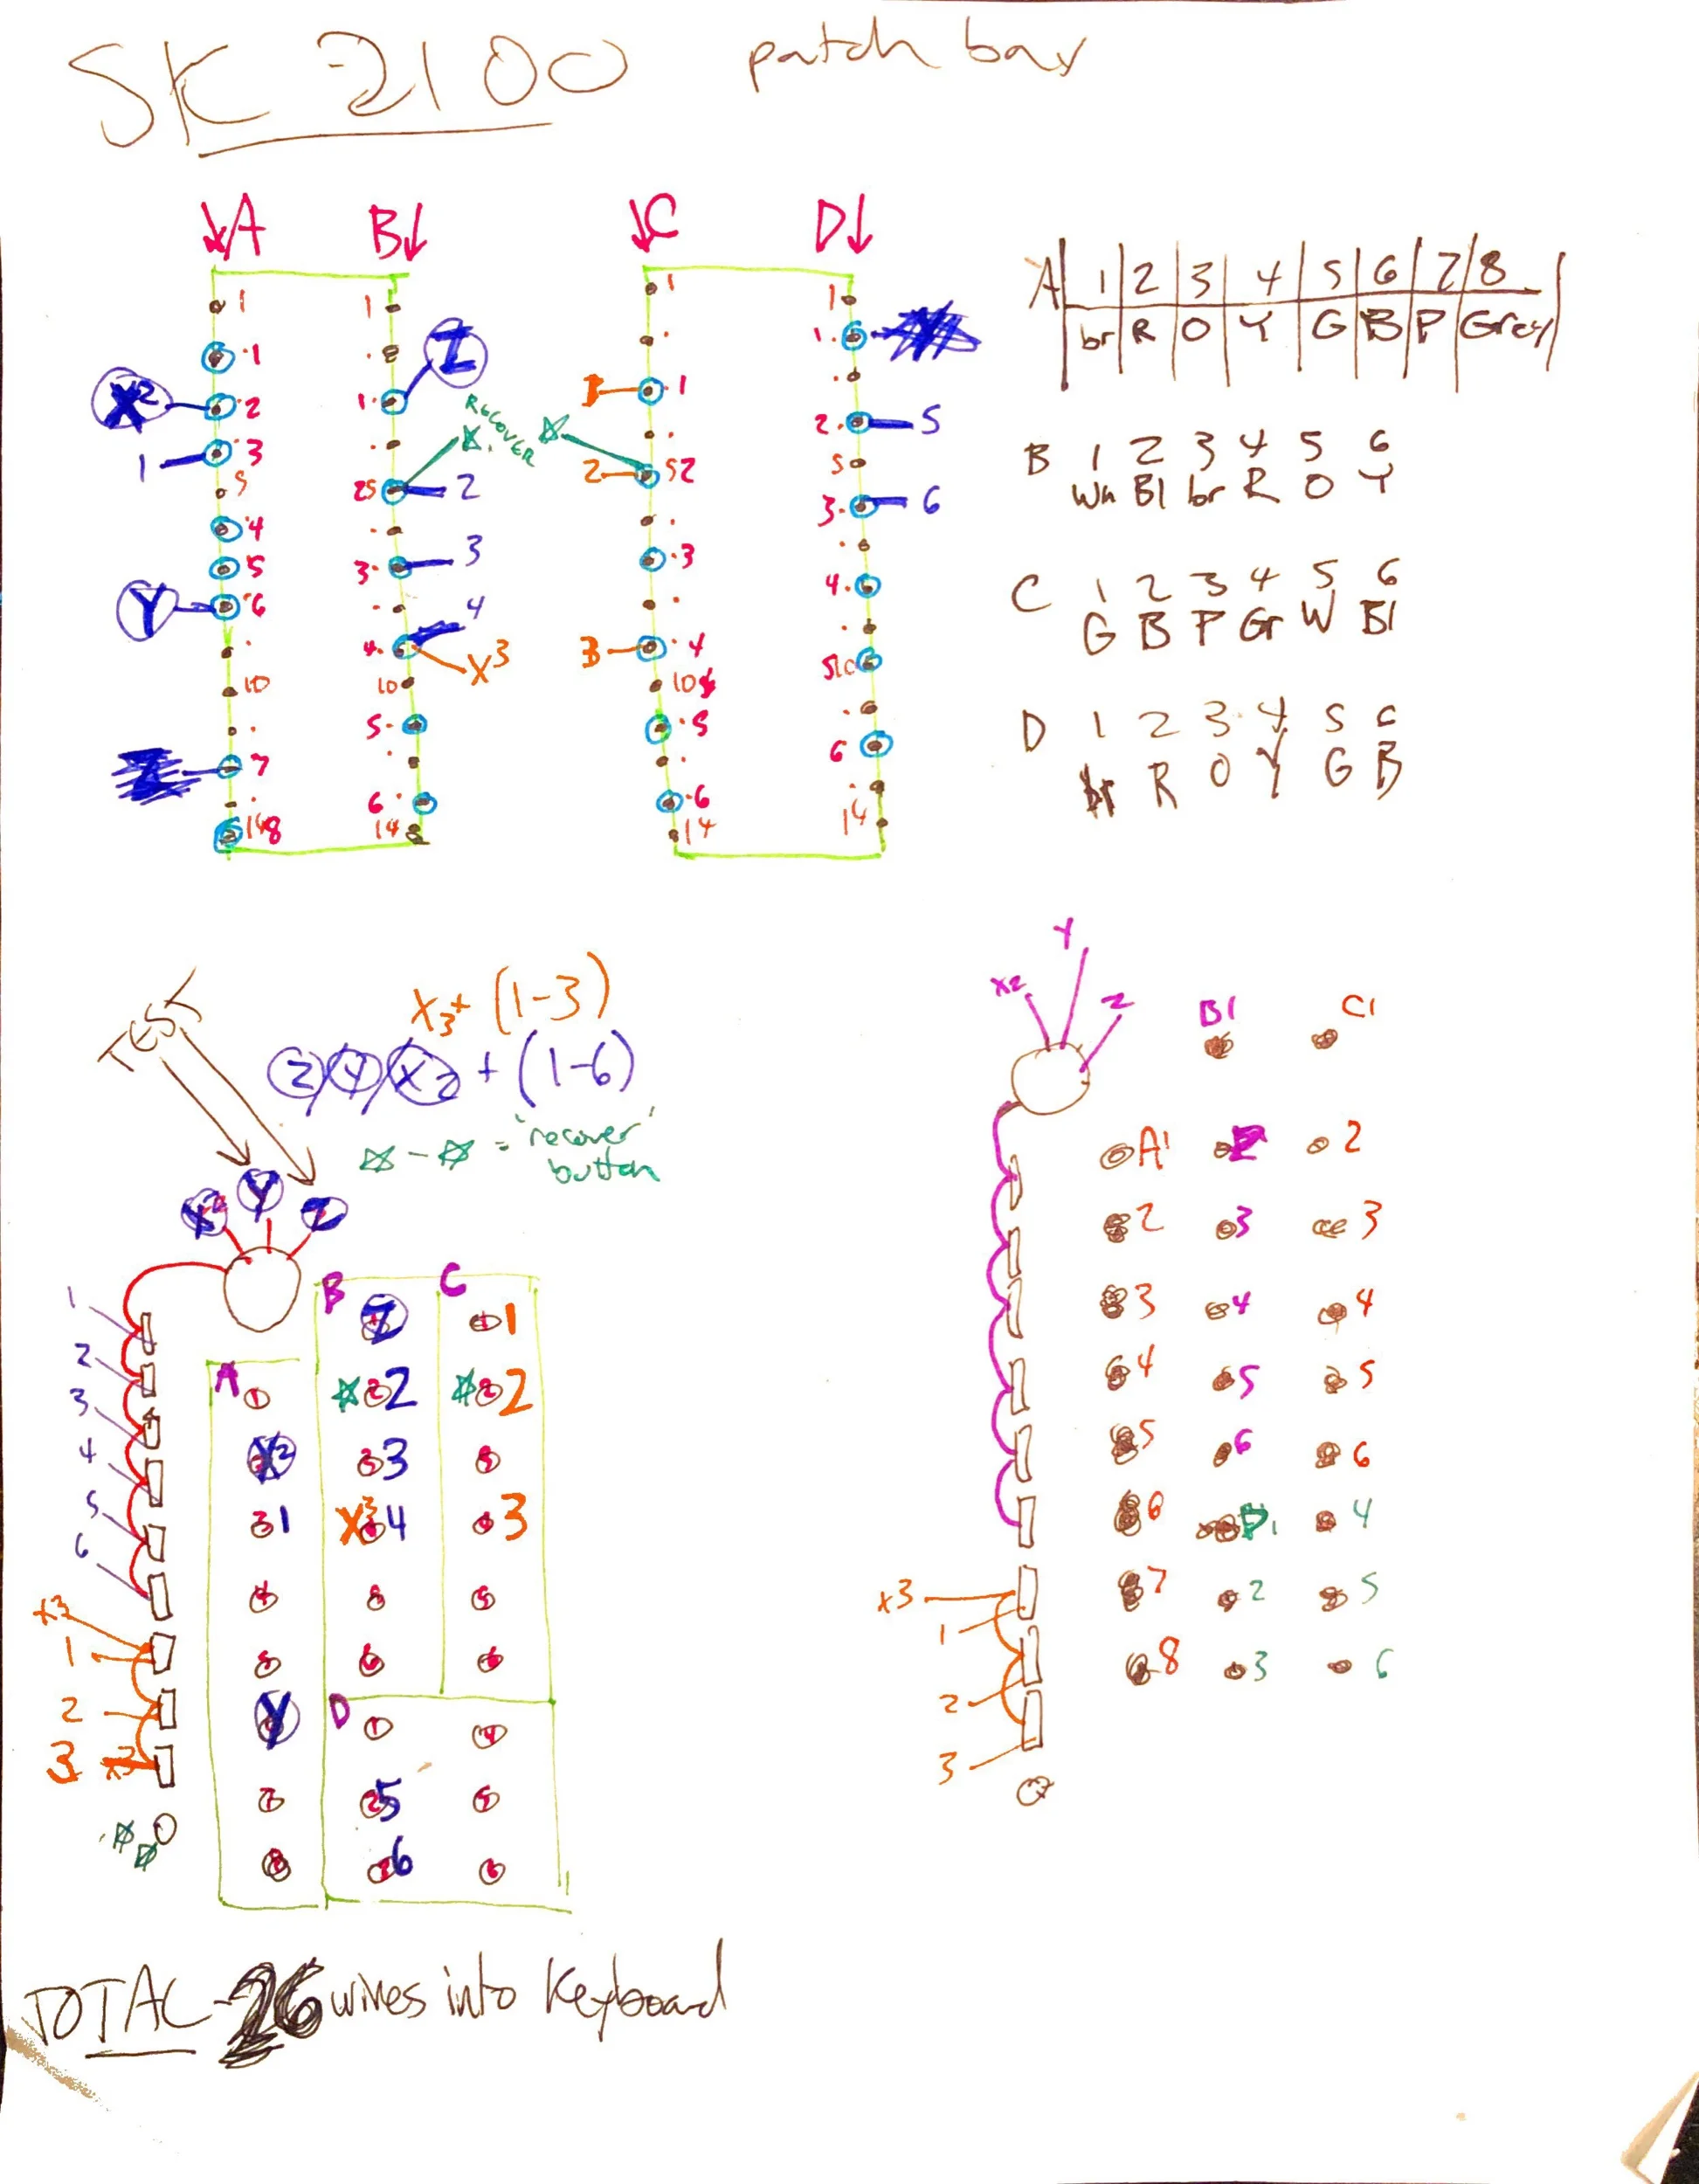 SK-2100 patch bay
A B C D
1 1 1 1
1 . . 1
Z
X2 2 1 1 1 .
RECOVER
1 3 . . 2 5
5 2S 2 2 S2 S
4 . . 3 6
5 3 3 3 .
Y 6 . 4 . 4
. 4 X3 3 4 .
10 10 10 S10
. 5 5 .
7 . . 6
. 6 6 .
148 14 14 14
A 1 2 3 4 5 6 7 8
br R O Y G B P Grey
B 1 2 3 4 5 6
Wh Bl br R O Y
C 1 2 3 4 5 6
G B P Gr W Bl
D 1 2 3 4 5 6
br R O Y G B
TEST
X3 + (1-3)
Z Y X2 + (1-6)
☆ - ☆ = 'recover'
button
X2 Y Z
1
2
3
4
5
6
X3
1
2
3
A B C
Z 1
1 ☆ 2 ☆ 2
X2 3 3
3 1 X3 4 3
4 5 5
5 6 6
Y D 1 4
7 2 5 5
8 6 6
☆ ☆
X2 Y Z
B1 C1
A1 2 2
2 3 3
3 4 4
4 5 5
5 6 6
6 D1 4
7 2 5
8 3 6
X3
1
2
3
TOTAL - 26 wires into Keyboard